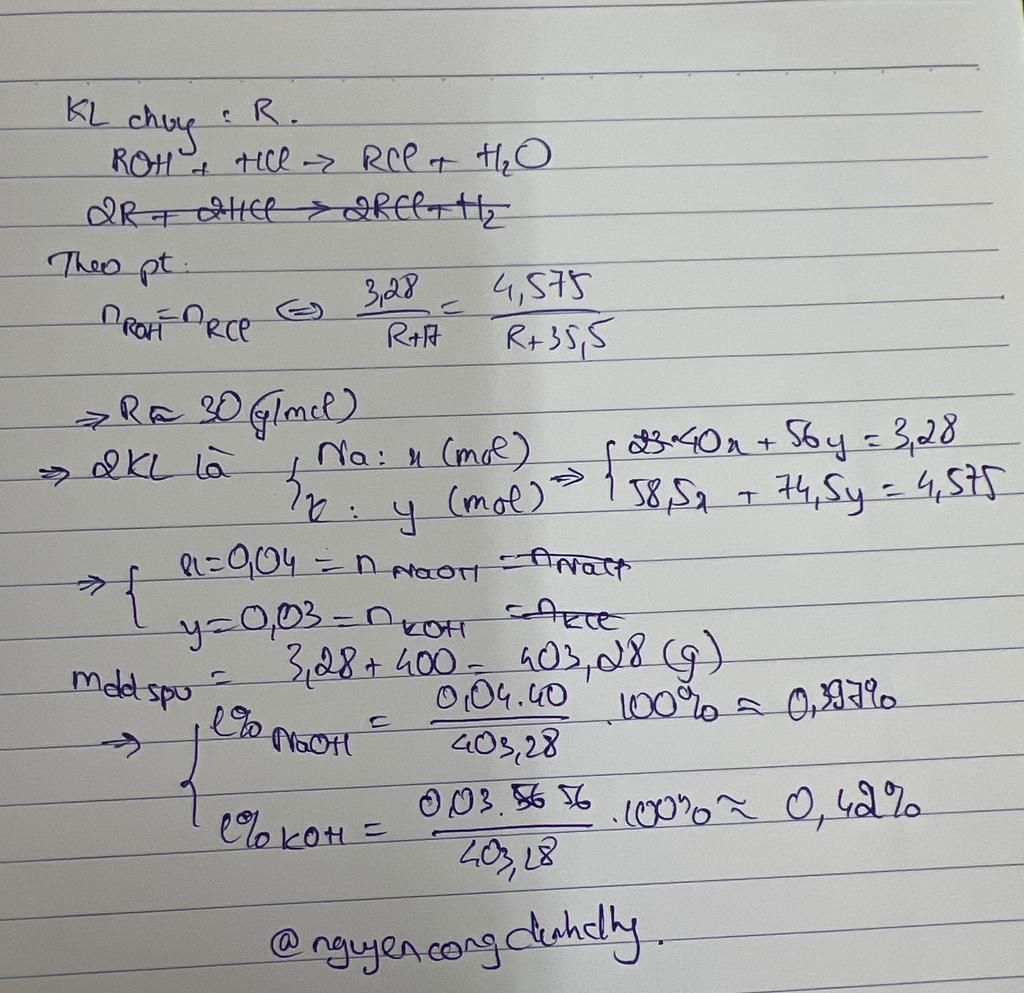 KL chug : R.
ROH + HCl → RCl + H₂O
2R + 2HCl → 2RCl + H₂
Theo pt:
n_ROH = n_RCl ⇔ 3,28/(R+17) = 4,575/(R+35,5)
⇒ R ≈ 30 (g/mol)
⇒ 2KL là { Na: x (mol) ; K: y (mol) ⇒ { 40x + 56y = 3,28 ; 58,5x + 74,5y = 4,575
⇒ { x = 0,04 = n_NaOH = n_NaCl
y = 0,03 = n_KOH = n_KCl
mdd spư = 3,28 + 400 = 403,28 (g)
⇒ { C% NaOH = 0,04.40/403,28 .100% ≈ 0,397%
C% KOH = 0,03.56/403,28 .100% ≈ 0,42%